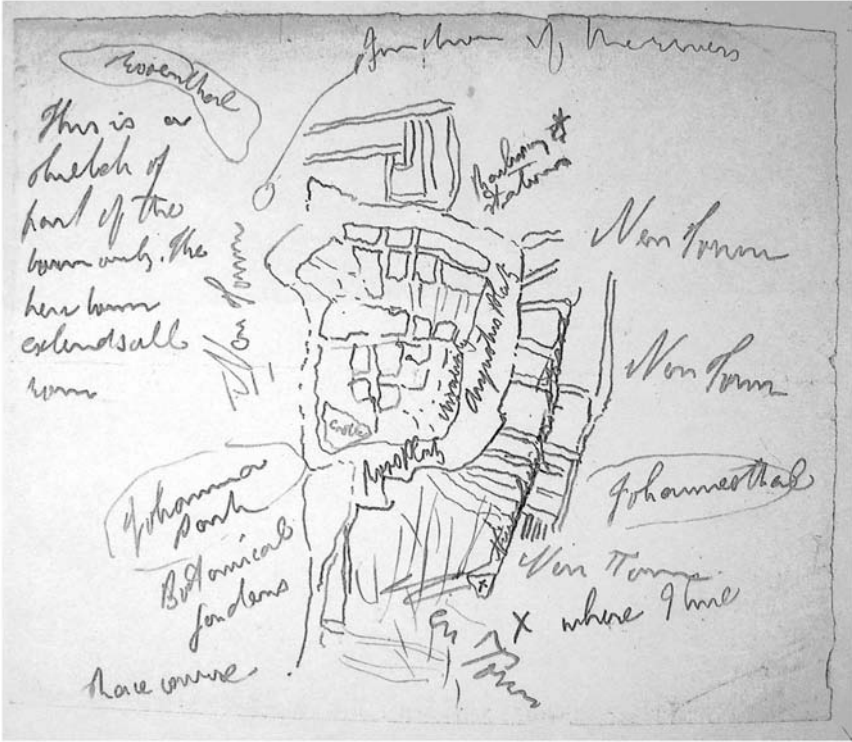 Junction of the rivers
Rosenthal
This is a
sketch of
part of the
town only. The
new town
extends all
roun
New Town
Railway
Stations
New Town
New Town
Augustus Platz
University
Castle
Ross Platz
Johanna
Park
Botanical
Gardens
Race course
Johannesthal
New Town
X where I live
Town